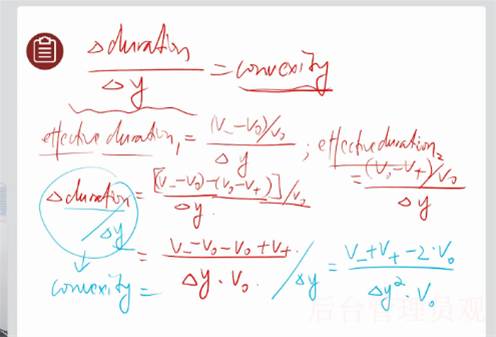 Δduration / Δy = convexity
effective duration₁ = (V₋-V₀)/V₀ / Δy ; effective duration₂ = (V₀-V₊)/V₀ / Δy
Δduration / Δy = [(V₋-V₀)-(V₀-V₊)]/V₀ / Δy.
convexity = = V₋-V₀-V₀+V₊ / Δy·V₀ / Δy = V₋+V₊-2·V₀ / Δy²·V₀
后台管理员观